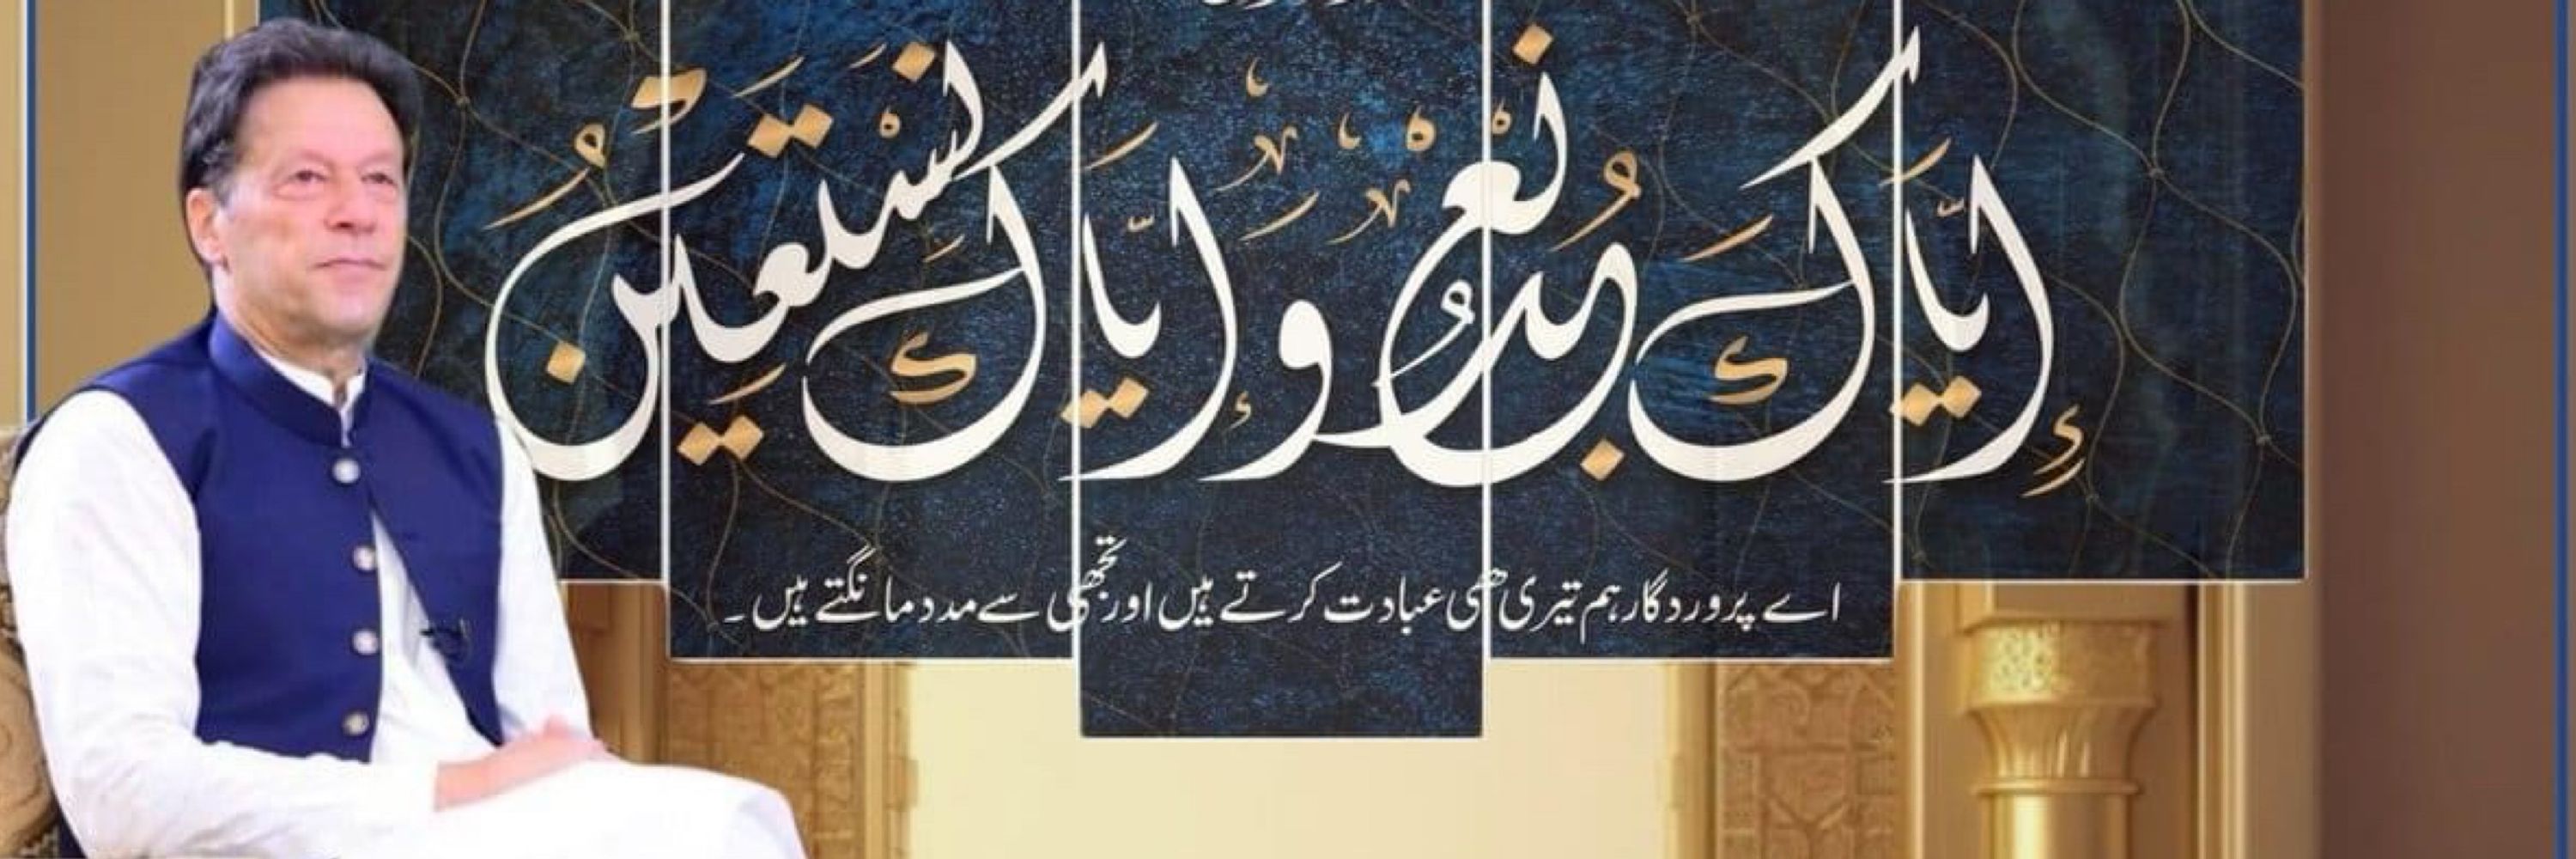 إِيَّاكَ نَعْبُدُ وَإِيَّاكَ نَسْتَعِينُ
اے پروردگار ہم تیری ہی عبادت کرتے ہیں اور تجھی سے مدد مانگتے ہیں۔